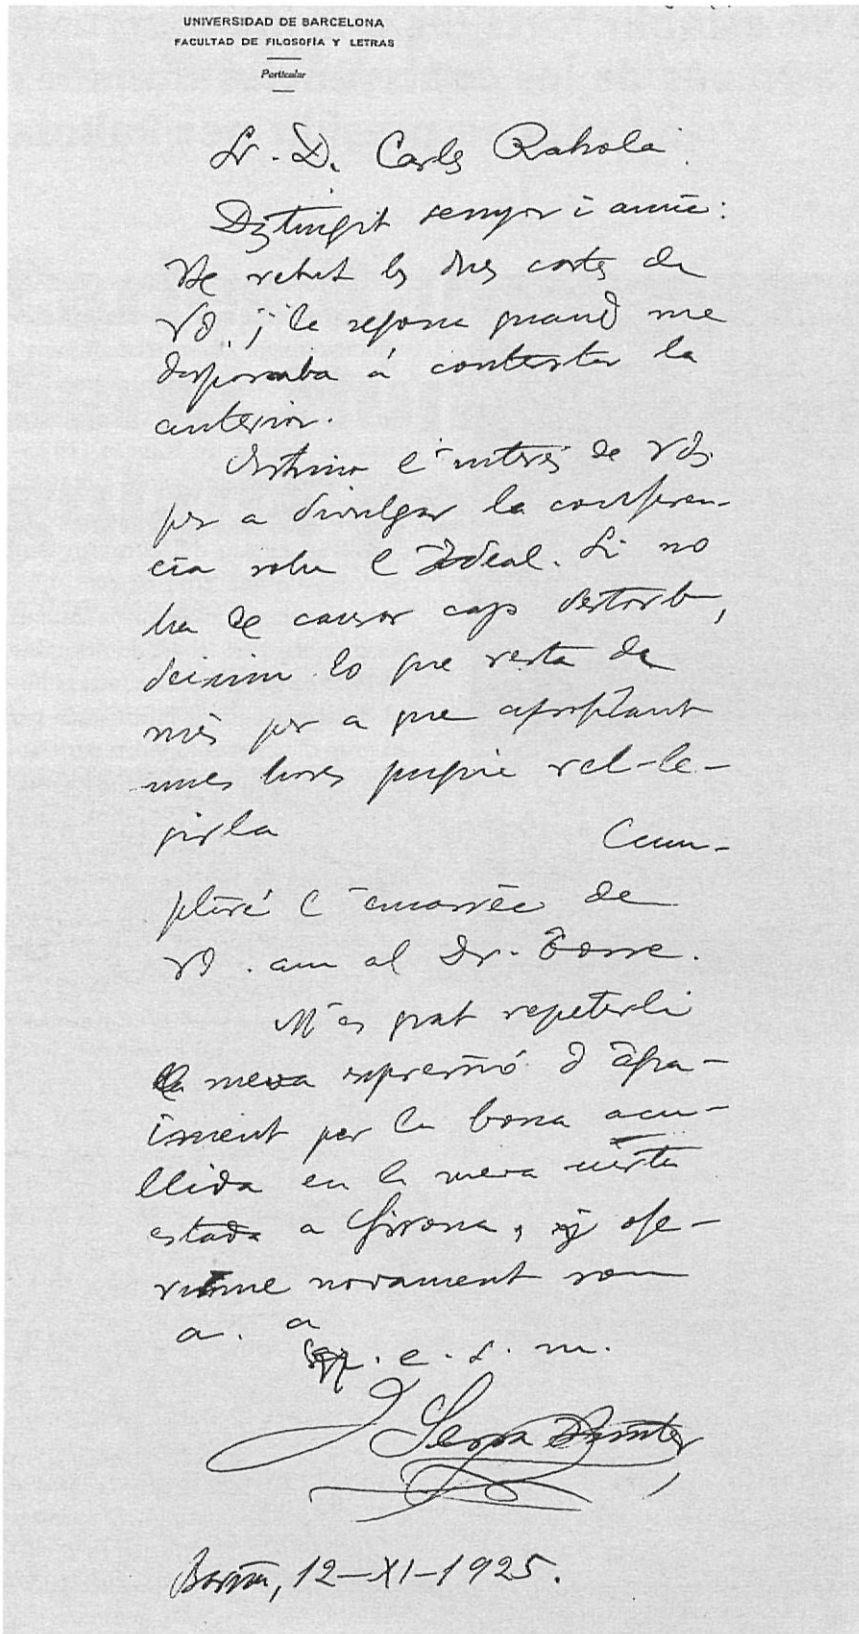 UNIVERSIDAD DE BARCELONA
FACULTAD DE FILOSOFÍA Y LETRAS
Particular
Sr. D. Carles Rahola
Distingit senyor i amic:
He rebut les dues cartes de
Vd. i la segona quand me
disposaba á contestar la
anterior.
Estimo l'interés de Vds
per a divulgar la conferen-
cia sobre l'Ideal. Si no
ha de causar cap destorb,
deixim lo que resta de
mès per a que aprofitant
unes hores pugui rel-le-
girla Cum-
pliré l'encarrèc de
Vd. am al Dr. Torre.
M'es grat repeterli
la meva expressió d'agra-
iment per la bona acu-
llida en la meva
estada a Girona, y ofe-
rirme novament som
a. a
q. e. s. m.
J Serra Hunter
Barna, 12-XI-1925.